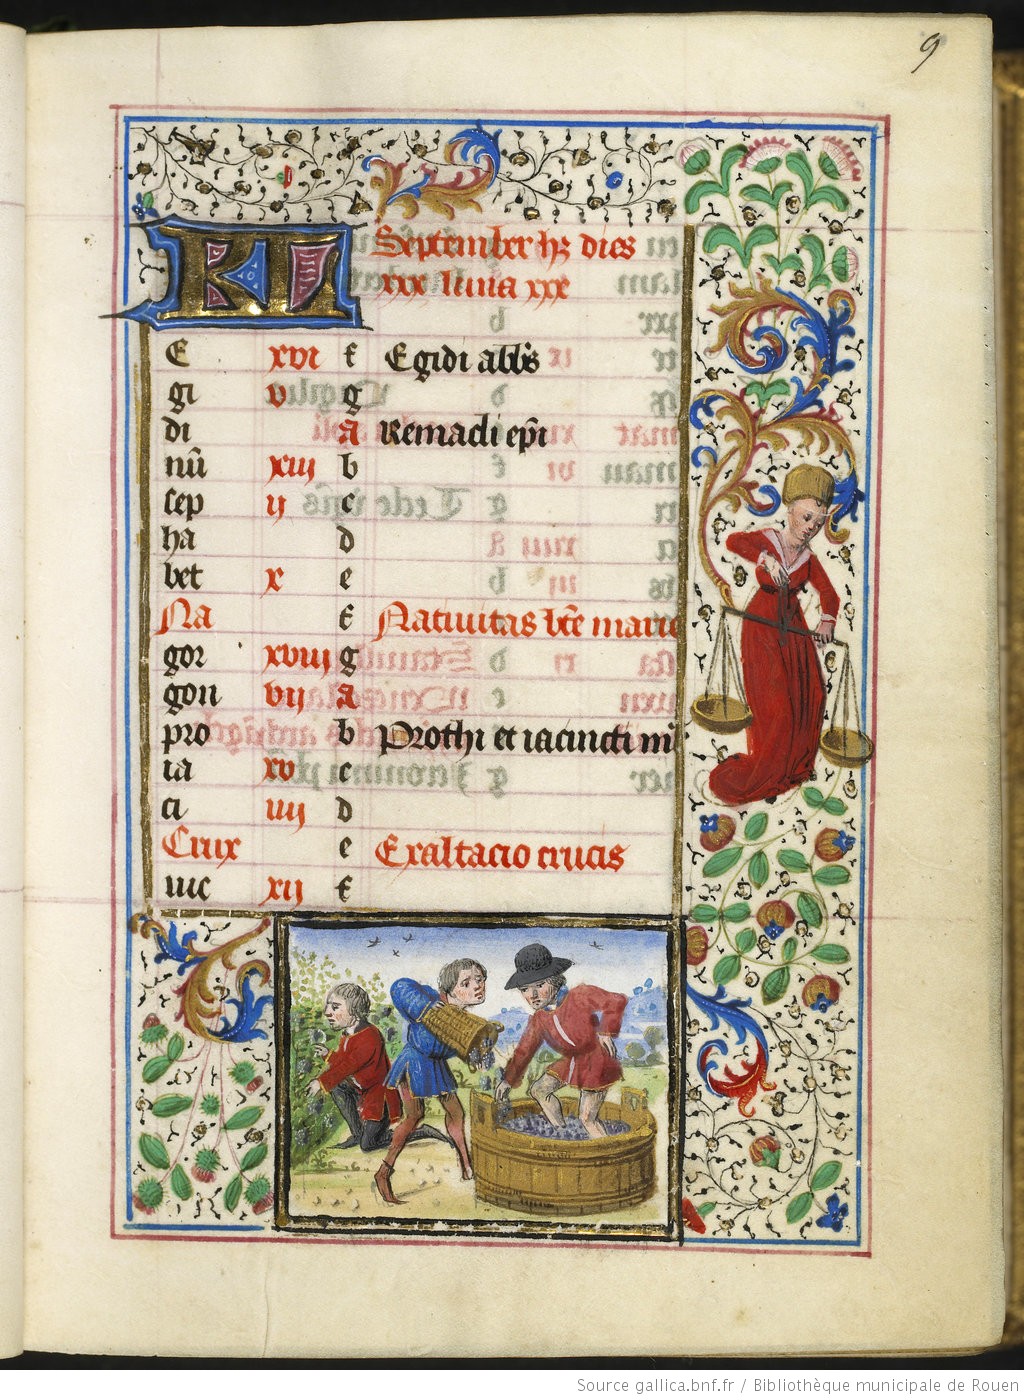 9
KL September hz dies
xxx luna xxx
E xvi f Egidi abbis
gi v g
di A Remacli epi
nu xiii b
sep ii c
ha d
bet x e
Na f Nativitas bte marie
gor xviii g
gon vii A
pro b Prothi et iacincti m
ia xv c
ci iiii d
Crux e Exaltacio crucis
nic xii f
Source gallica.bnf.fr / Bibliothèque municipale de Rouen